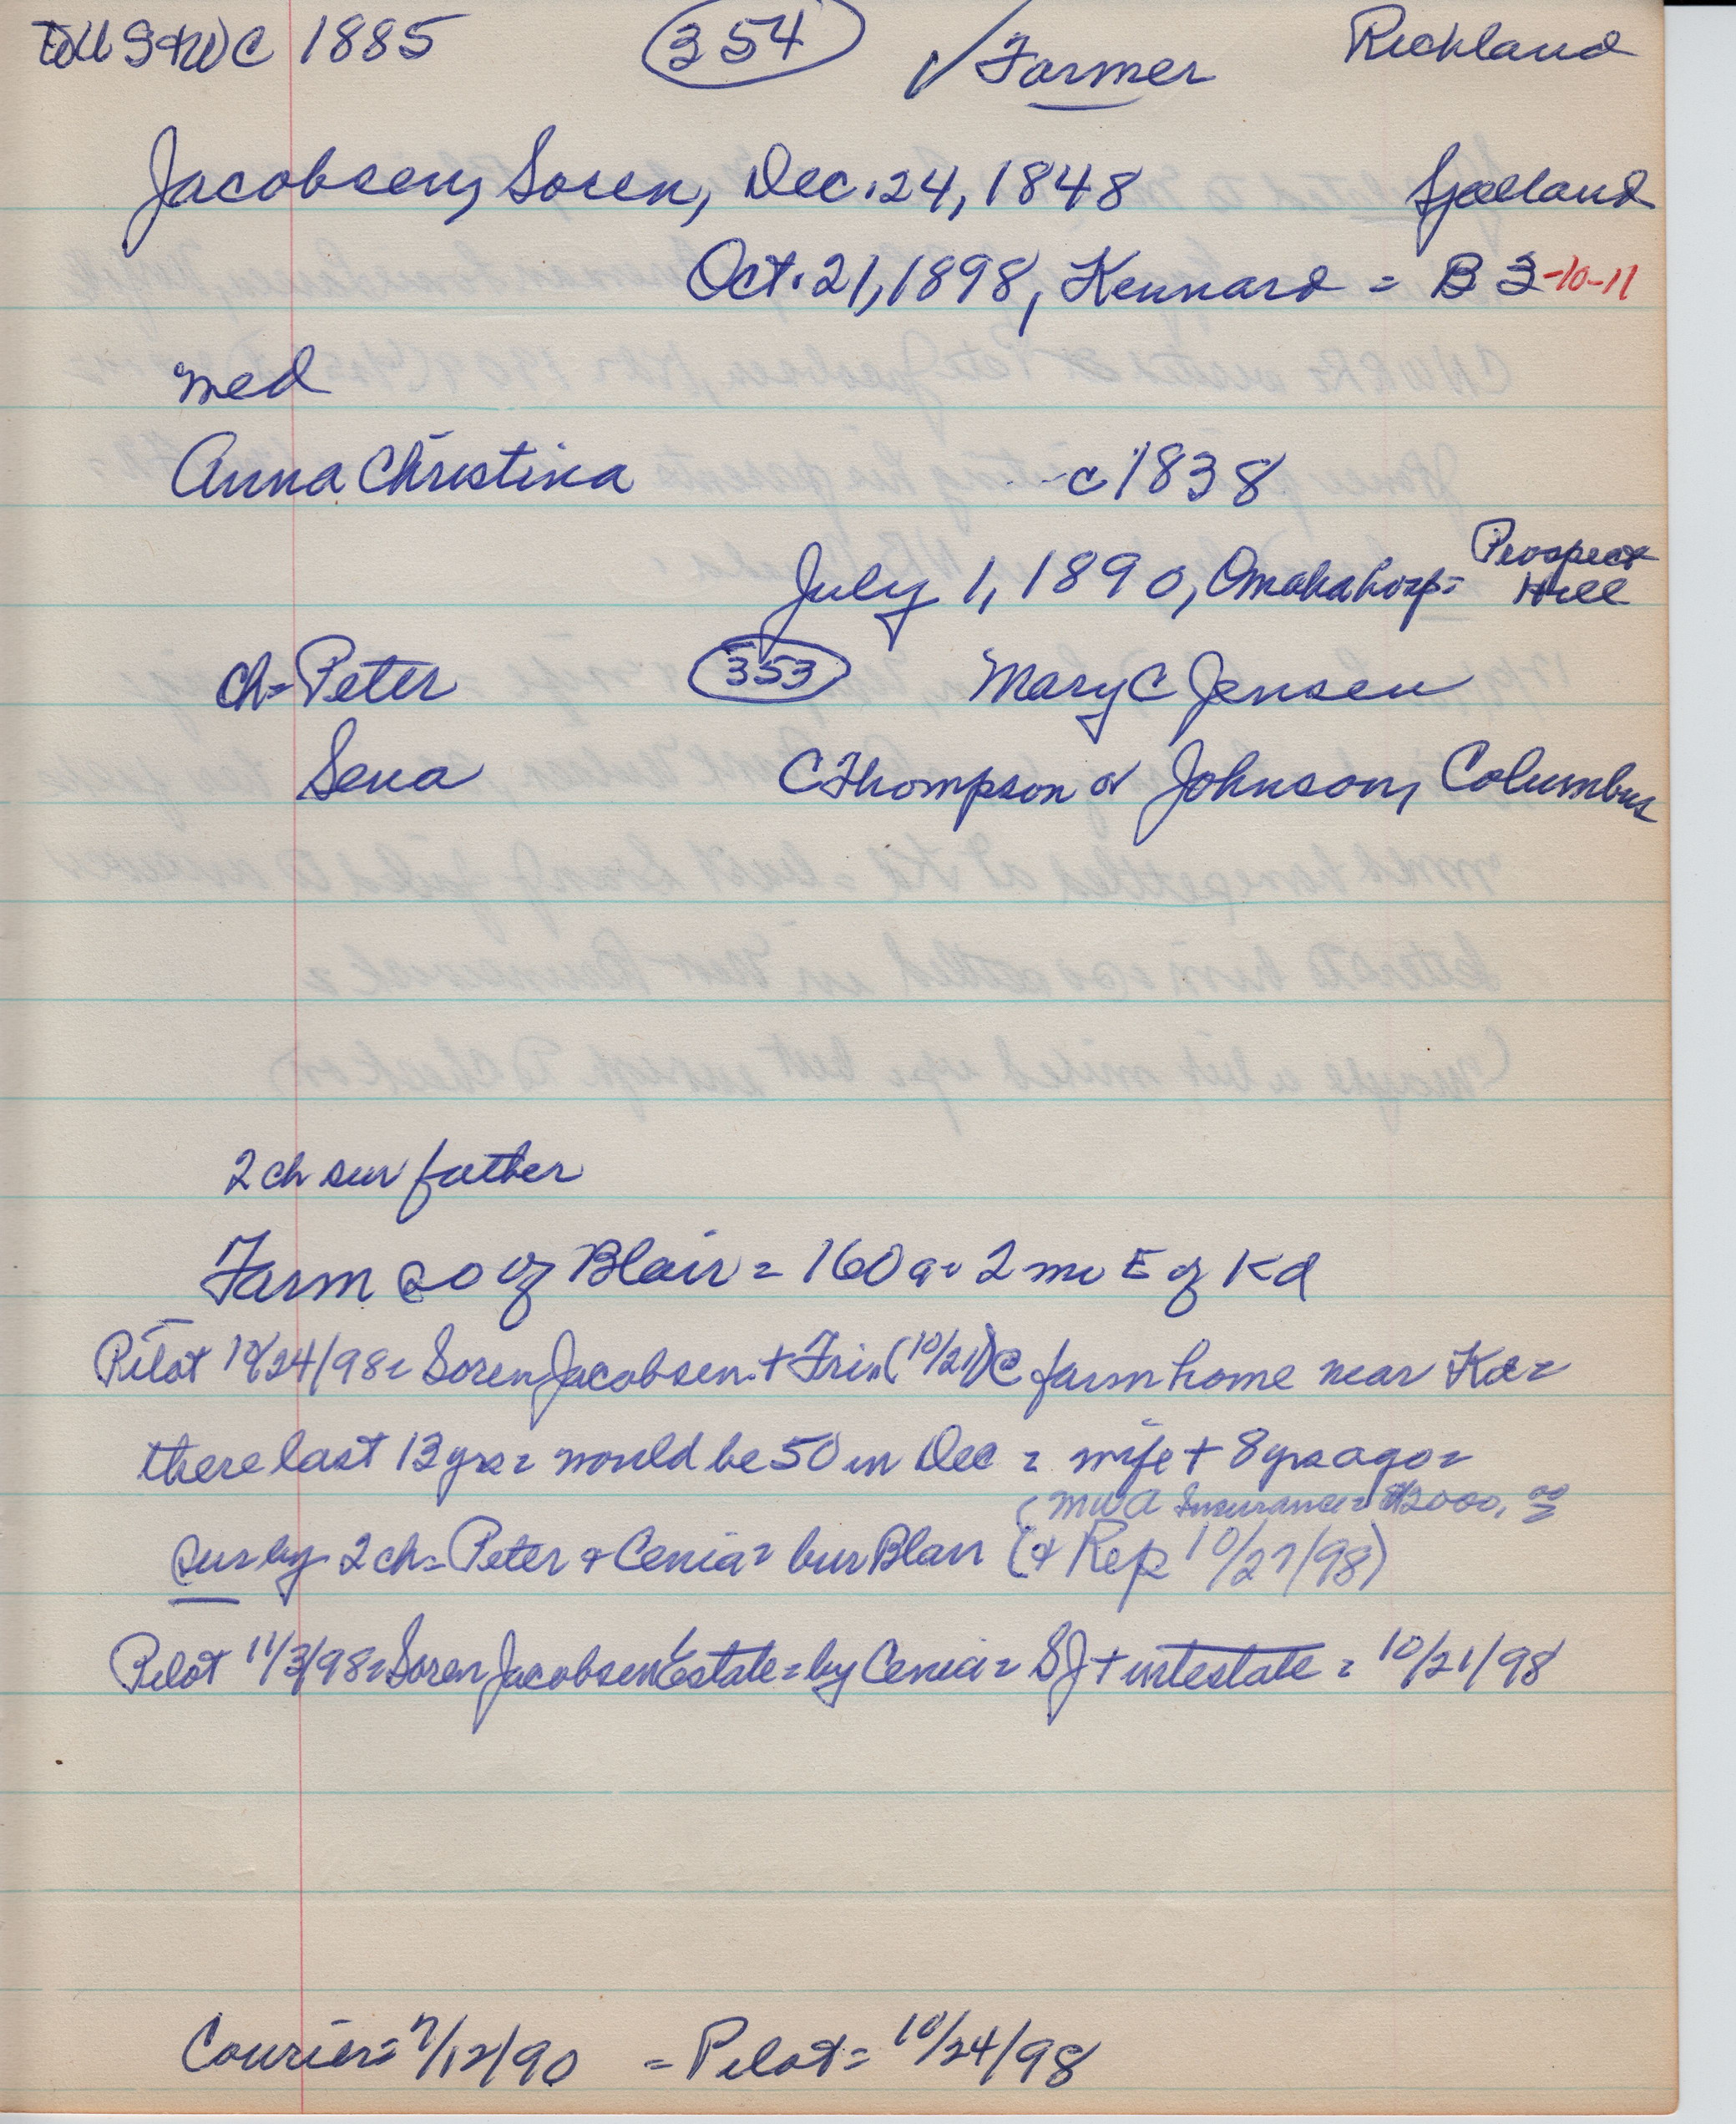 1885 (354) ✓Farmer Richland
Jacobsen, Soren, Dec. 24, 1848 Sjælland
Oct. 21, 1898, Kennard = B 3-10-11
med
Anna Christina c 1838
July 1, 1890, Omaha hosp = Prospect Hill
ch = Peter (353) Mary C Jensen
Sena C Thompson or Johnson, Columbus
2 ch sur father
Farm so of Blair = 160 a = 2 mi E of Kd
Pilot 10/24/98 = Soren Jacobsen + Fri (10/21) @ farm home near Kd =
there last 13 yrs = would be 50 in Dec = wife + 8 yrs ago =
(MWA Insurance = $2000.00
sur by 2 ch = Peter & Cenia = bur Blair (& Rep 10/27/98)
Pilot 11/3/98 = Soren Jacobsen Estate = by Cenia = SJ + intestate = 10/21/98
Courier = 7/12/90 = Pilot = 10/24/98